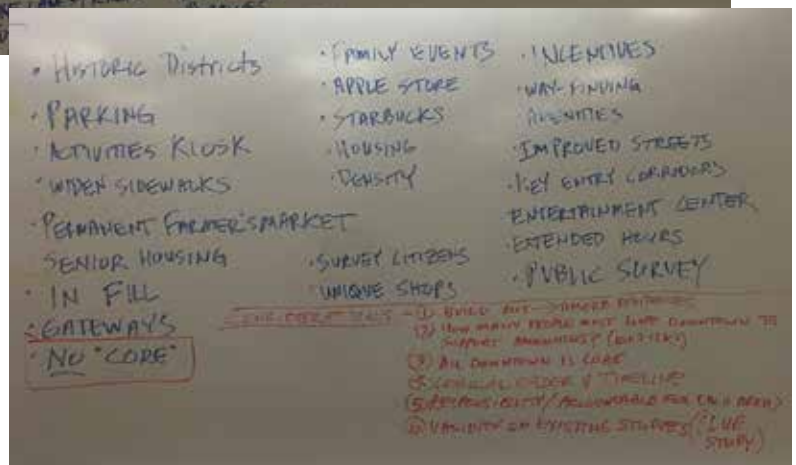 • Historic Districts
• PARKING
• ACTIVITIES KIOSK
• WIDEN SIDEWALKS
• PERMANENT FARMER'S MARKET
SENIOR HOUSING
• IN FILL
• GATEWAYS
• NO "CORE"
• FAMILY EVENTS
• APPLE STORE
• STARBUCKS
• HOUSING
• DENSITY
• SURVEY CITIZENS
• UNIQUE SHOPS
• INCENTIVES
• WAY-FINDING
• AMENITIES
• IMPROVED STREETS
• KEY ENTRY CORRIDORS
ENTERTAINMENT CENTER
• EXTENDED HOURS
• PUBLIC SURVEY
① BUILD OUT →
② HOW MANY PEOPLE MUST LIVE DOWNTOWN TO
SUPPORT
③ ALL DOWNTOWN IS CORE
④ LOGICAL ORDER & TIMELINE
⑤ RESPONSIBILITY/ACCOUNTABLE FOR EACH AREA
⑥ VALIDITY OF EXISTING STUDIES (
STUDY)